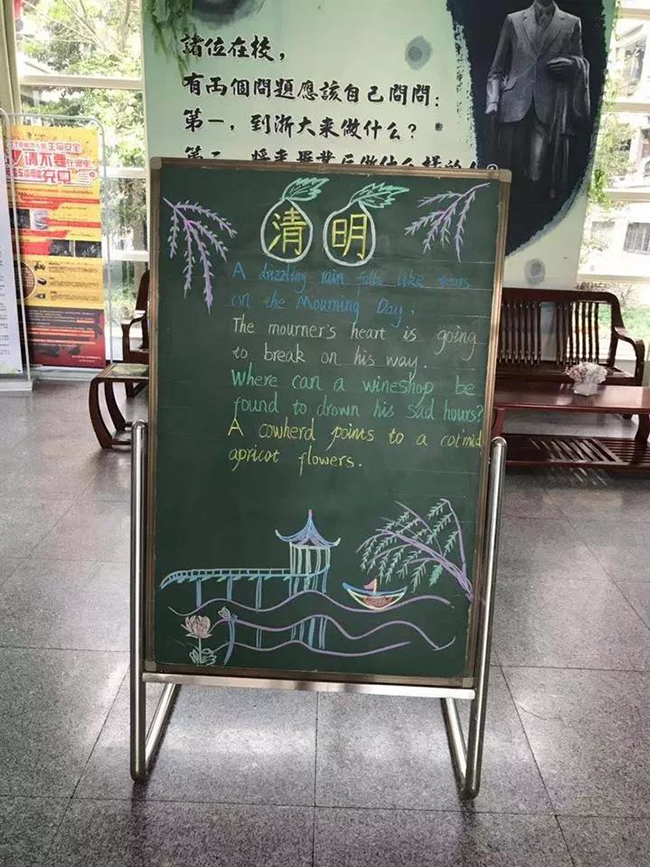 諸位在校，
有兩個問題應該自己問問：
第一，到浙大來做什么？
第二，將來畢業后做什么樣的
生命安全
请不要在楼里
充电
清明
A drizzling rain falls like tears
on the Mourning Day.
The mourner's heart is going
to break on his way.
Where can a wineshop be
found to drown his sad hours?
A cowherd points to a cot'mid
apricot flowers.